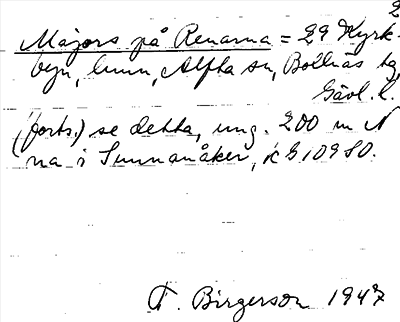 2
Majors på Renarna = 29 Kyrk-
byn, luun, Alfta sn, Bollnäs tg,
Gävl. l.
(forts.) se detta, ung. 200 m N
na i Sunnanåker, K G 10980.
T. Birgerson 1947